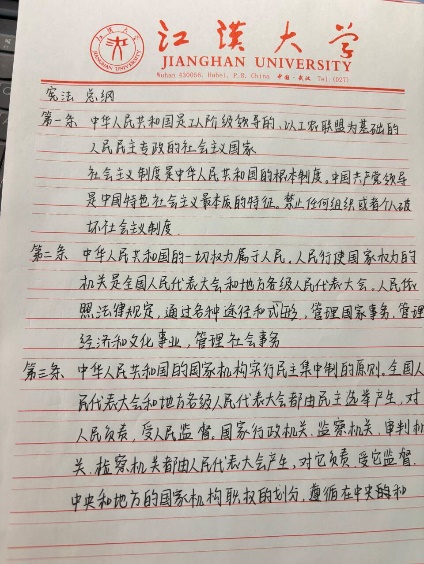 江汉大学
JIANGHAN UNIVERSITY
Wuhan 430056, Hubei, P.R. China 中国·武汉 Tel.(027)
宪法 总纲
第一条 中华人民共和国是工人阶级领导的、以工农联盟为基础的
人民民主专政的社会主义国家
社会主义制度是中华人民共和国的根本制度。中国共产党领导
是中国特色社会主义最本质的特征。禁止任何组织或者个人破
坏社会主义制度
第二条 中华人民共和国的一切权力属于人民。人民行使国家权力的
机关是全国人民代表大会和地方各级人民代表大会。人民依
照法律规定,通过各种途径和式,管理国家事务,管理
经济和文化事业,管理社会事务
第三条 中华人民共和国的国家机构实行民主集中制的原则。全国人
民代表大会和地方各级人民代表大会都由民主选举产生,对
人民负责,受人民监督。国家行政机关、监察机关、审判机
关、检察机关都由人民代表大会产生,对它负责,受它监督.
中央和地方的国家机构职权的划分,遵循在中央的和